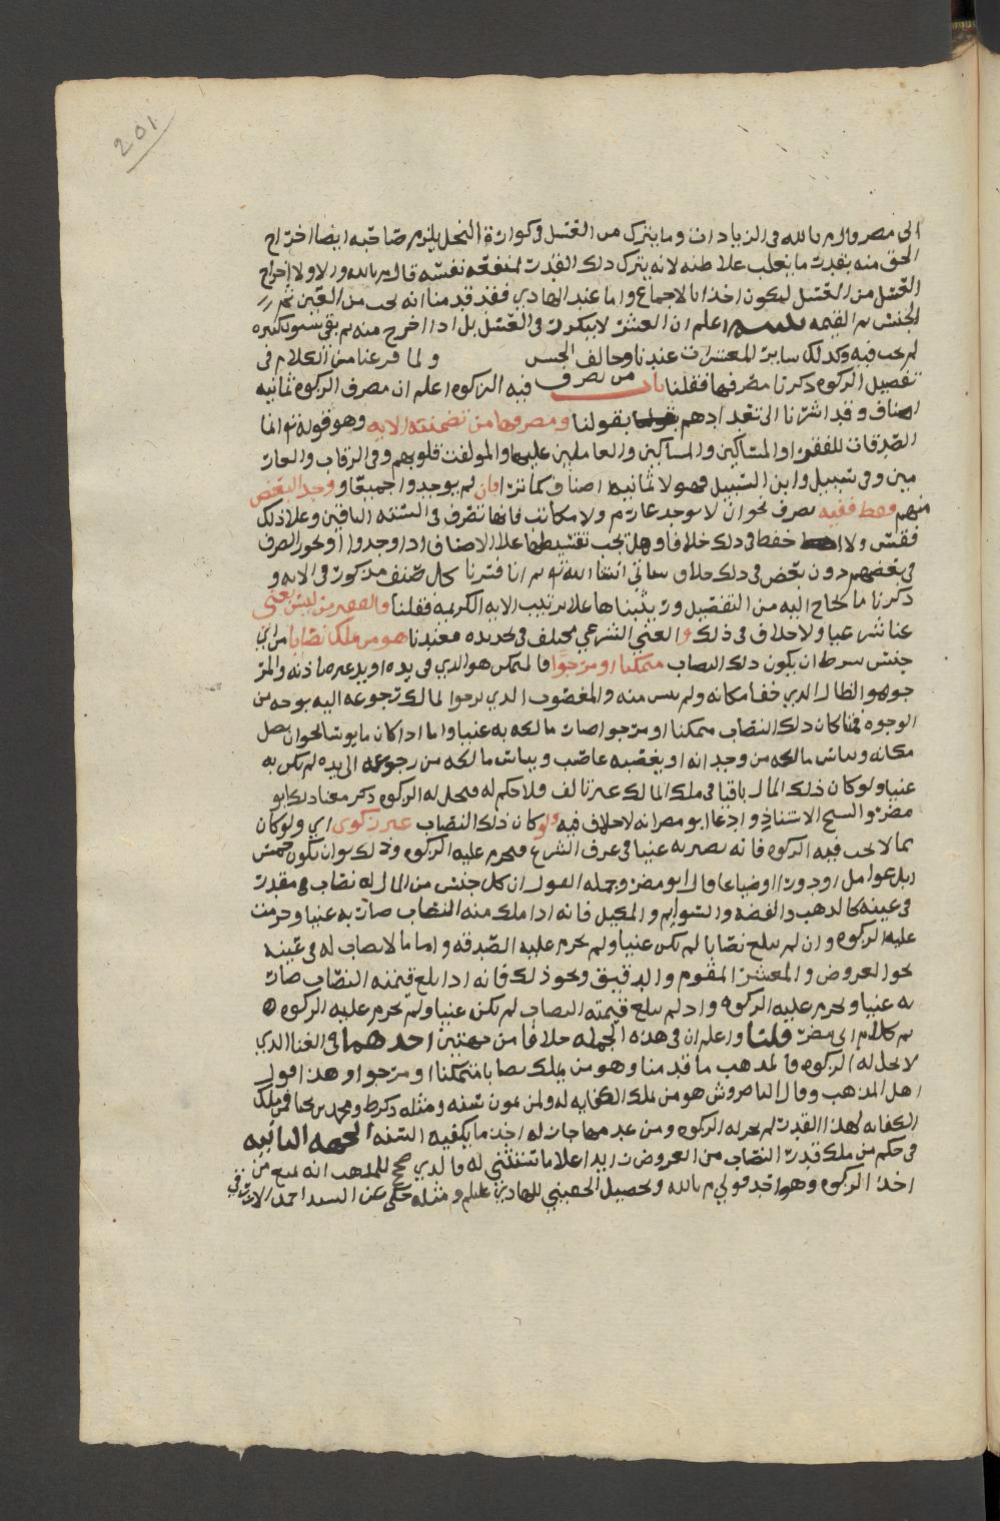 201
الى مضر وقال م بالله فى الزيادات وما يترك من العسل فى كوارة النحل يلزم صاحبه ايضا اخراج
الحق منه بقدر ما يغلب على ظنه لانه يترك ذلك القدر لمنفعة نفسه قال م بالله والاولا اخراج
العسل من العسل ليكون اخذا بالاجماع واما عند الهادي فقد قدمنا انه يجب من العين ثم
الجنس ثم القيمه اعلم ان العشر لا يتكرر فى العسل بل اذا اخرج منه ثم بقي سنو كثيره
لم يجب فيه وكذلك ساير المعشرات عندنا وخالف الحسن ولما فرغنا من الكلام فى
تفصيل الزكوه ذكرنا مصرفها فقلنا باب من تصرف فيه الزكوه اعلم ان مصرف الزكوه ثمانيه
اصناف وقد اشرنا الى تعدادهم بقولنا ومصرفها من تضمنته الايه وهو قوله تع انما
الصدقات للفقرا والمساكين والعاملين عليها والمولفت قلوبهم وفى الرقاب والغار
مين وفى سبيل وابن السبيل فهولا ثمانيه اصناف كما ترا فان لم يوجدوا جميعا ووجد البعض
منهم فقط ففيه يصرف نحو ان لا يوجد غارم ولا مكاتب فانها تصرف فى السته الباقين وعلا ذلك
فقس ولا خفظ فى ذلك خلافا وهل يجب تقسيطها علا الاصناف اذا وجدوا او يجوز الصرف
فى بعضهم دون بعض فى ذلك خلاف سياتي انشا الله تع ثم انا فسرنا كل صنف مذكور فى الايه و
ذكرنا ما يحتاج اليه من التفصيل ورتبناها علا ترتيب الايه الكريمه فقلنا والفقير من ليس بغني
غنا شرعيا ولا خلاف فى ذلك والغني الشرعي مختلف فى تحديده فعندنا هو من ملك نصابا من اي
جنس بشرط ان يكون ذلك النصاب متمكنا او مرجوا فالمتمكن هو الذي فى يده او يد غيره باذنه والمر
جو هو الضال الذي خفا مكانه ولم ييس منه والمغصوب الذي يرجوا المالك رجوعه اليه بوجه من
الوجوه فمتا كان ذلك النصاب متمكنا او مرجوا صار مالكه به غنيا واما اذا كان مايوسا نحو ان يضل
مكانه ويياس مالكه من وجدانه او يغصبه غاصب ويياس مالكه من رجوعه الى يده لم يكن به
غنيا ولو كان ذلك المال باقيا فى ملك المالك غير تالف فلا حكم له فتحل له الزكوه ذكر معنا ذلك ابو
مضر والشيخ الاستاذ وادعا ابو مضر انه لا خلاف فيه ولو كان ذلك النصاب غير زكوي اي ولو كان
مما لا يجب فيه الزكوه فانه يصير به غنيا فى عرف الشرع فتحرم عليه الزكوه وذلك نحو ان يكون خمس
ابل عوامل او دورا او ضياعا قال ابو مضر وجملة القول ان كل جنس من المال له نصاب مقدر
فى عينه كالذهب والفضه والسوايم والمكيل فانه اذا ملك منه النصاب صار به غنيا وحرمت
عليه الزكوه وان لم يبلغ نصابا لم يكن غنيا ولم يحرم عليه الصدقه واما ما لا نصاب له فى عينه
نحو العروض والمعشر المقوم والدقيق ونحو ذلك فانه اذا بلغ قيمته النصاب صار
به غنيا وتحرم عليه الزكوه واذ لم يبلغ قيمته النصاب لم يكن غنيا ولم تحرم عليه الزكوه
تم كلام ابي مضر قلنا واعلم ان فى هذه الجمله خلافا من جهتين احدهما فى الغنا الذي
لا تحل له الزكوه فالمذهب ما قدمنا وهو من يملك نصابا متمكنا او مرجوا وهذا قول
اهل المذهب وقال الناصر وش هو من ملك الكفايه له ولمن يمون سنه ومثله ذكر ط ومحمد بن يحيا فمن ملك
الكفايه لهذا القدر لم تحل له الزكوه ومن عدمها جاز له اخذ ما يكفيه السنه الجهه الثانيه
فى حكم من ملك قدر النصاب من العروض زايدا علا ما تستثني له فالذي صحح للمذهب انه يمنع من
اخذ الزكوه وهو اخد قولي م بالله وتحصيل الحقيني للهادي عليلم ومثله حكي عن السيد احمد الازرقي